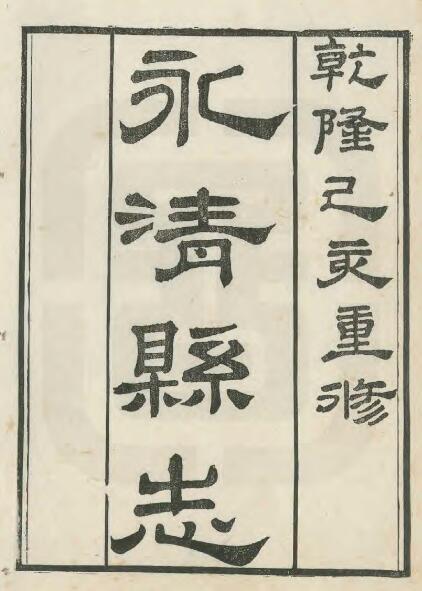 乾隆己亥重修
永淸縣志